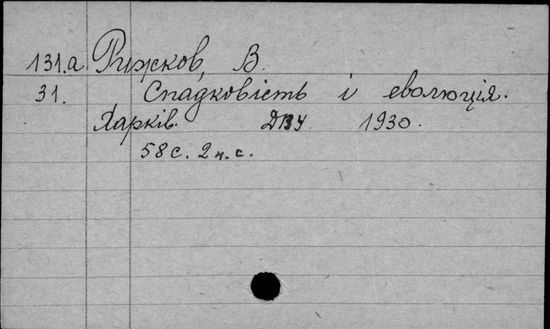 131.a Рижков, В.
31. Спадковість і еволюція.
Харків. ДВУ 1930.
58 с. 2 н. с.